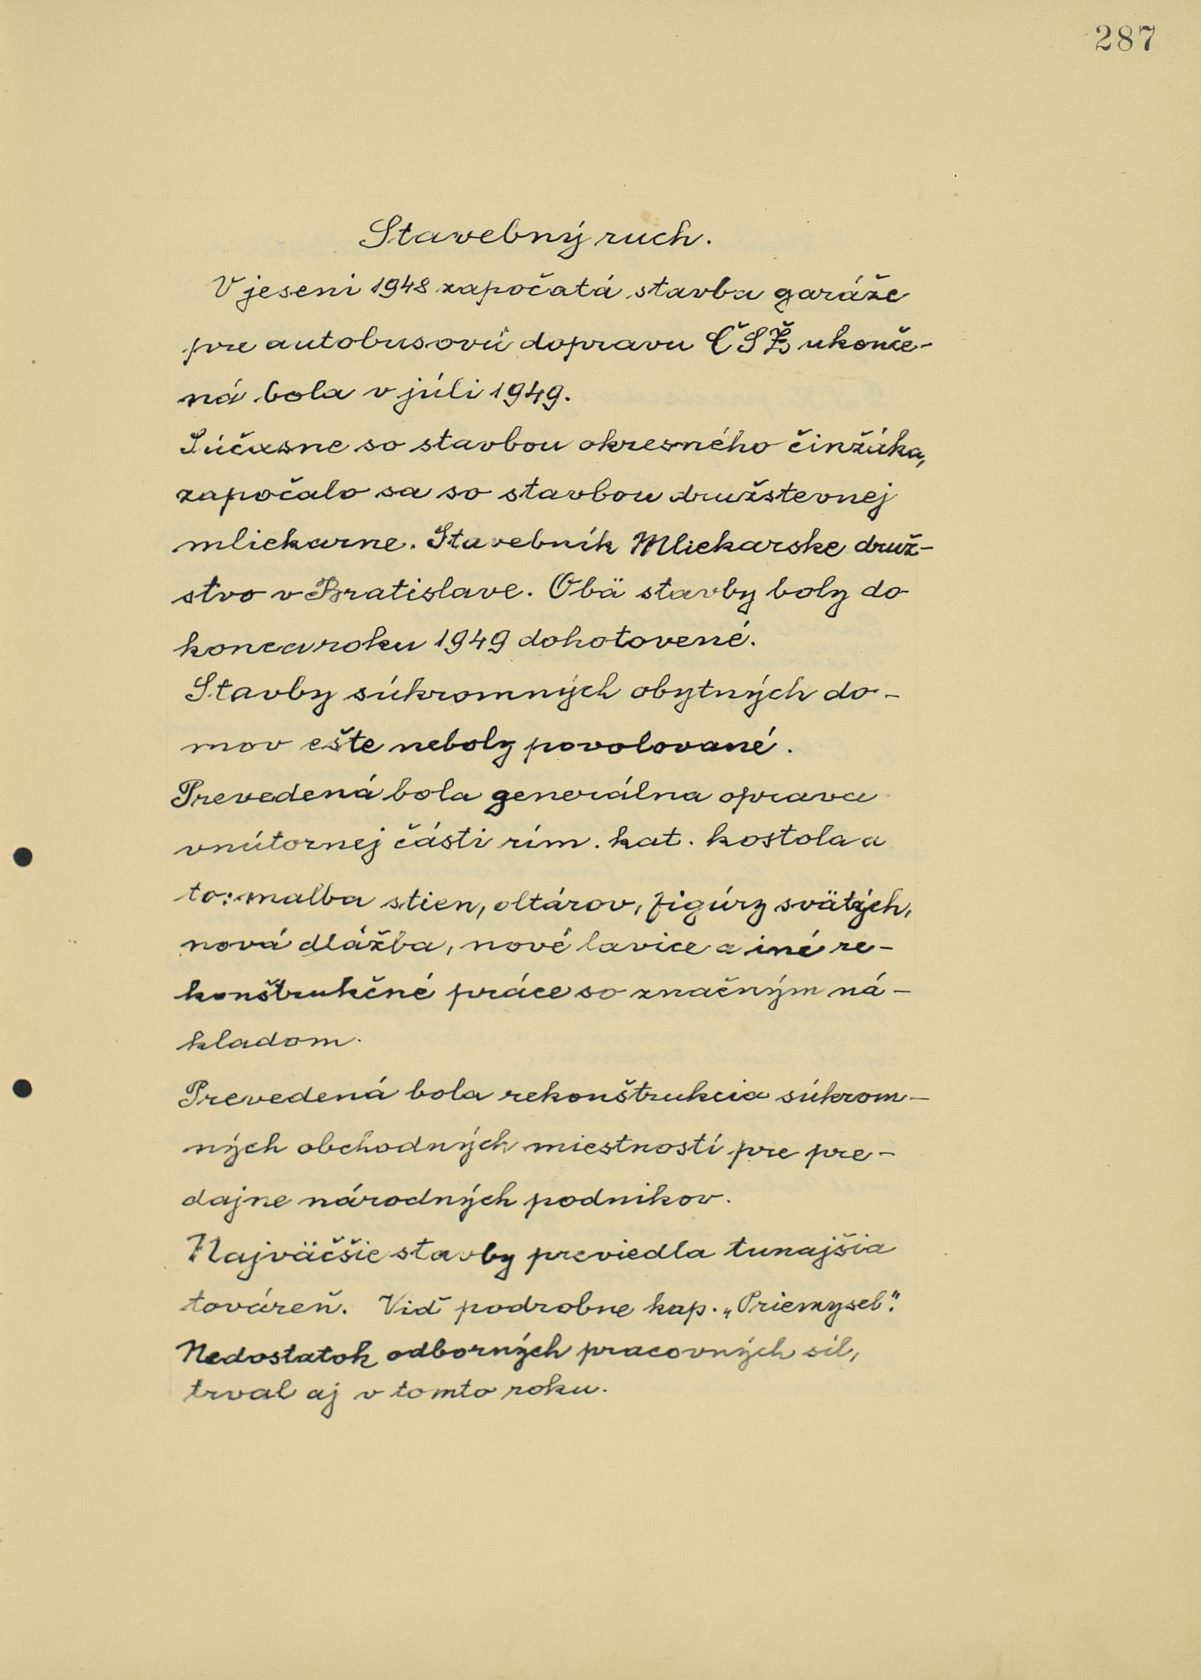 287
Stavebný ruch.
V jeseni 1948 započatá stavba garáže
pre autobusovú dopravu ČSŽ ukonče-
ná bola v júli 1949.
Súčasne so stavbou okresného činžáka,
započalo sa so stavbou družstevnej
mliekarne. Stavebník Mliekarske druž-
stvo v Bratislave. Obä stavby boly do
konca roku 1949 dohotovené.
Stavby súkromných obytných do-
mov ešte neboly povolované.
Prevedená bola generálna oprava
vnútornej části rím. kat. kostola a
to: malba stien, oltárov, figúry svätých,
nová dlážba, nové lavice a iné re-
konštrukčné práce so značným ná-
kladom.
Prevedená bola rekonštrukcia súkrom-
ných obchodných miestností pre pre-
dajne národných podnikov.
Najväčšie stavby previedla tunajšia
továreň. Viď podrobne kap. „Priemysel".
Nedostatok odborných pracovných síl,
trval aj v tomto roku.